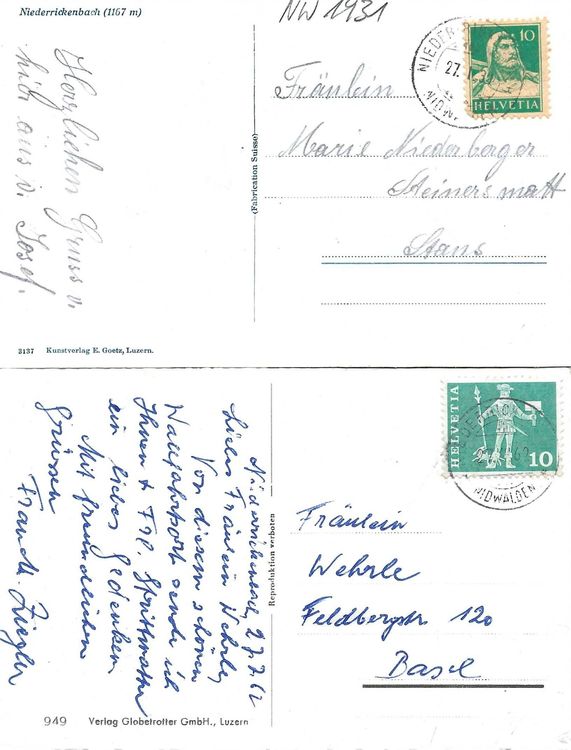 Niederrickenbach (1167 m)
NW 1931
NIEDER
27.
NIDW
10
HELVETIA
Herzlichen Gruss v.
hier aus v. Josef.
(Fabrication Suisse)
Fräulein
Marie Niederberger
Steinersmatt
Stans
3137 Kunstverlag E. Goetz, Luzern.
Niederrickenbach, 27.7.62
Liebes Fräulein Wehrle,
Von diesem schönen
Wallfahrtsort sende ich
Ihnen & Frl.
ein liebes Gedenken
Mit freundlichen
Grüssen
Frau M. Ziegler
Reproduktion verboten
HELVETIA
10
NIDWALDEN
Fräulein
Wehrle
Feldbergstr. 120
Basel
949 Verlag Globetrotter GmbH., Luzern